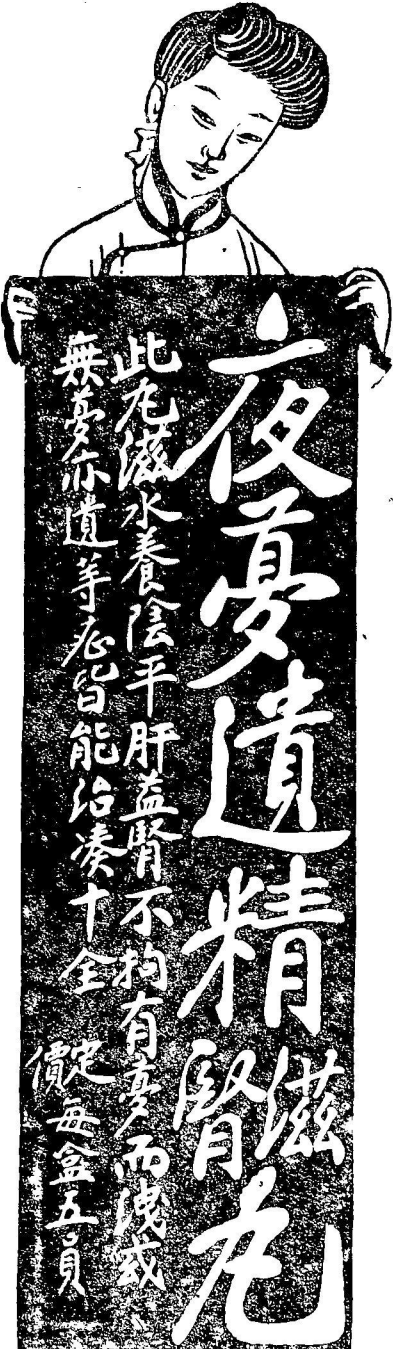 夜夢遺精滋腎丸
此丸滋水養陰平肝益腎不拘有夢而洩或
無夢亦遺等症皆能治湊十全
定價每盒五員